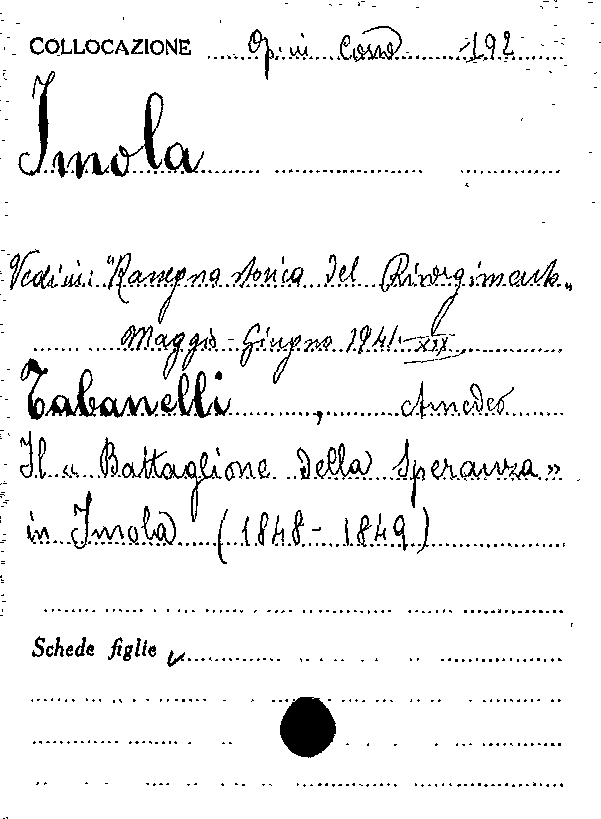 COLLOCAZIONE Op. in Corso 192
Imola
Vedi in: "Rassegna storica del Risorgimento"
Maggio - Giugno 1941 - XIX
Tabanelli, Amedeo
Il « Battaglione della Speranza »
in Imola (1848 - 1849)
Schede figlie